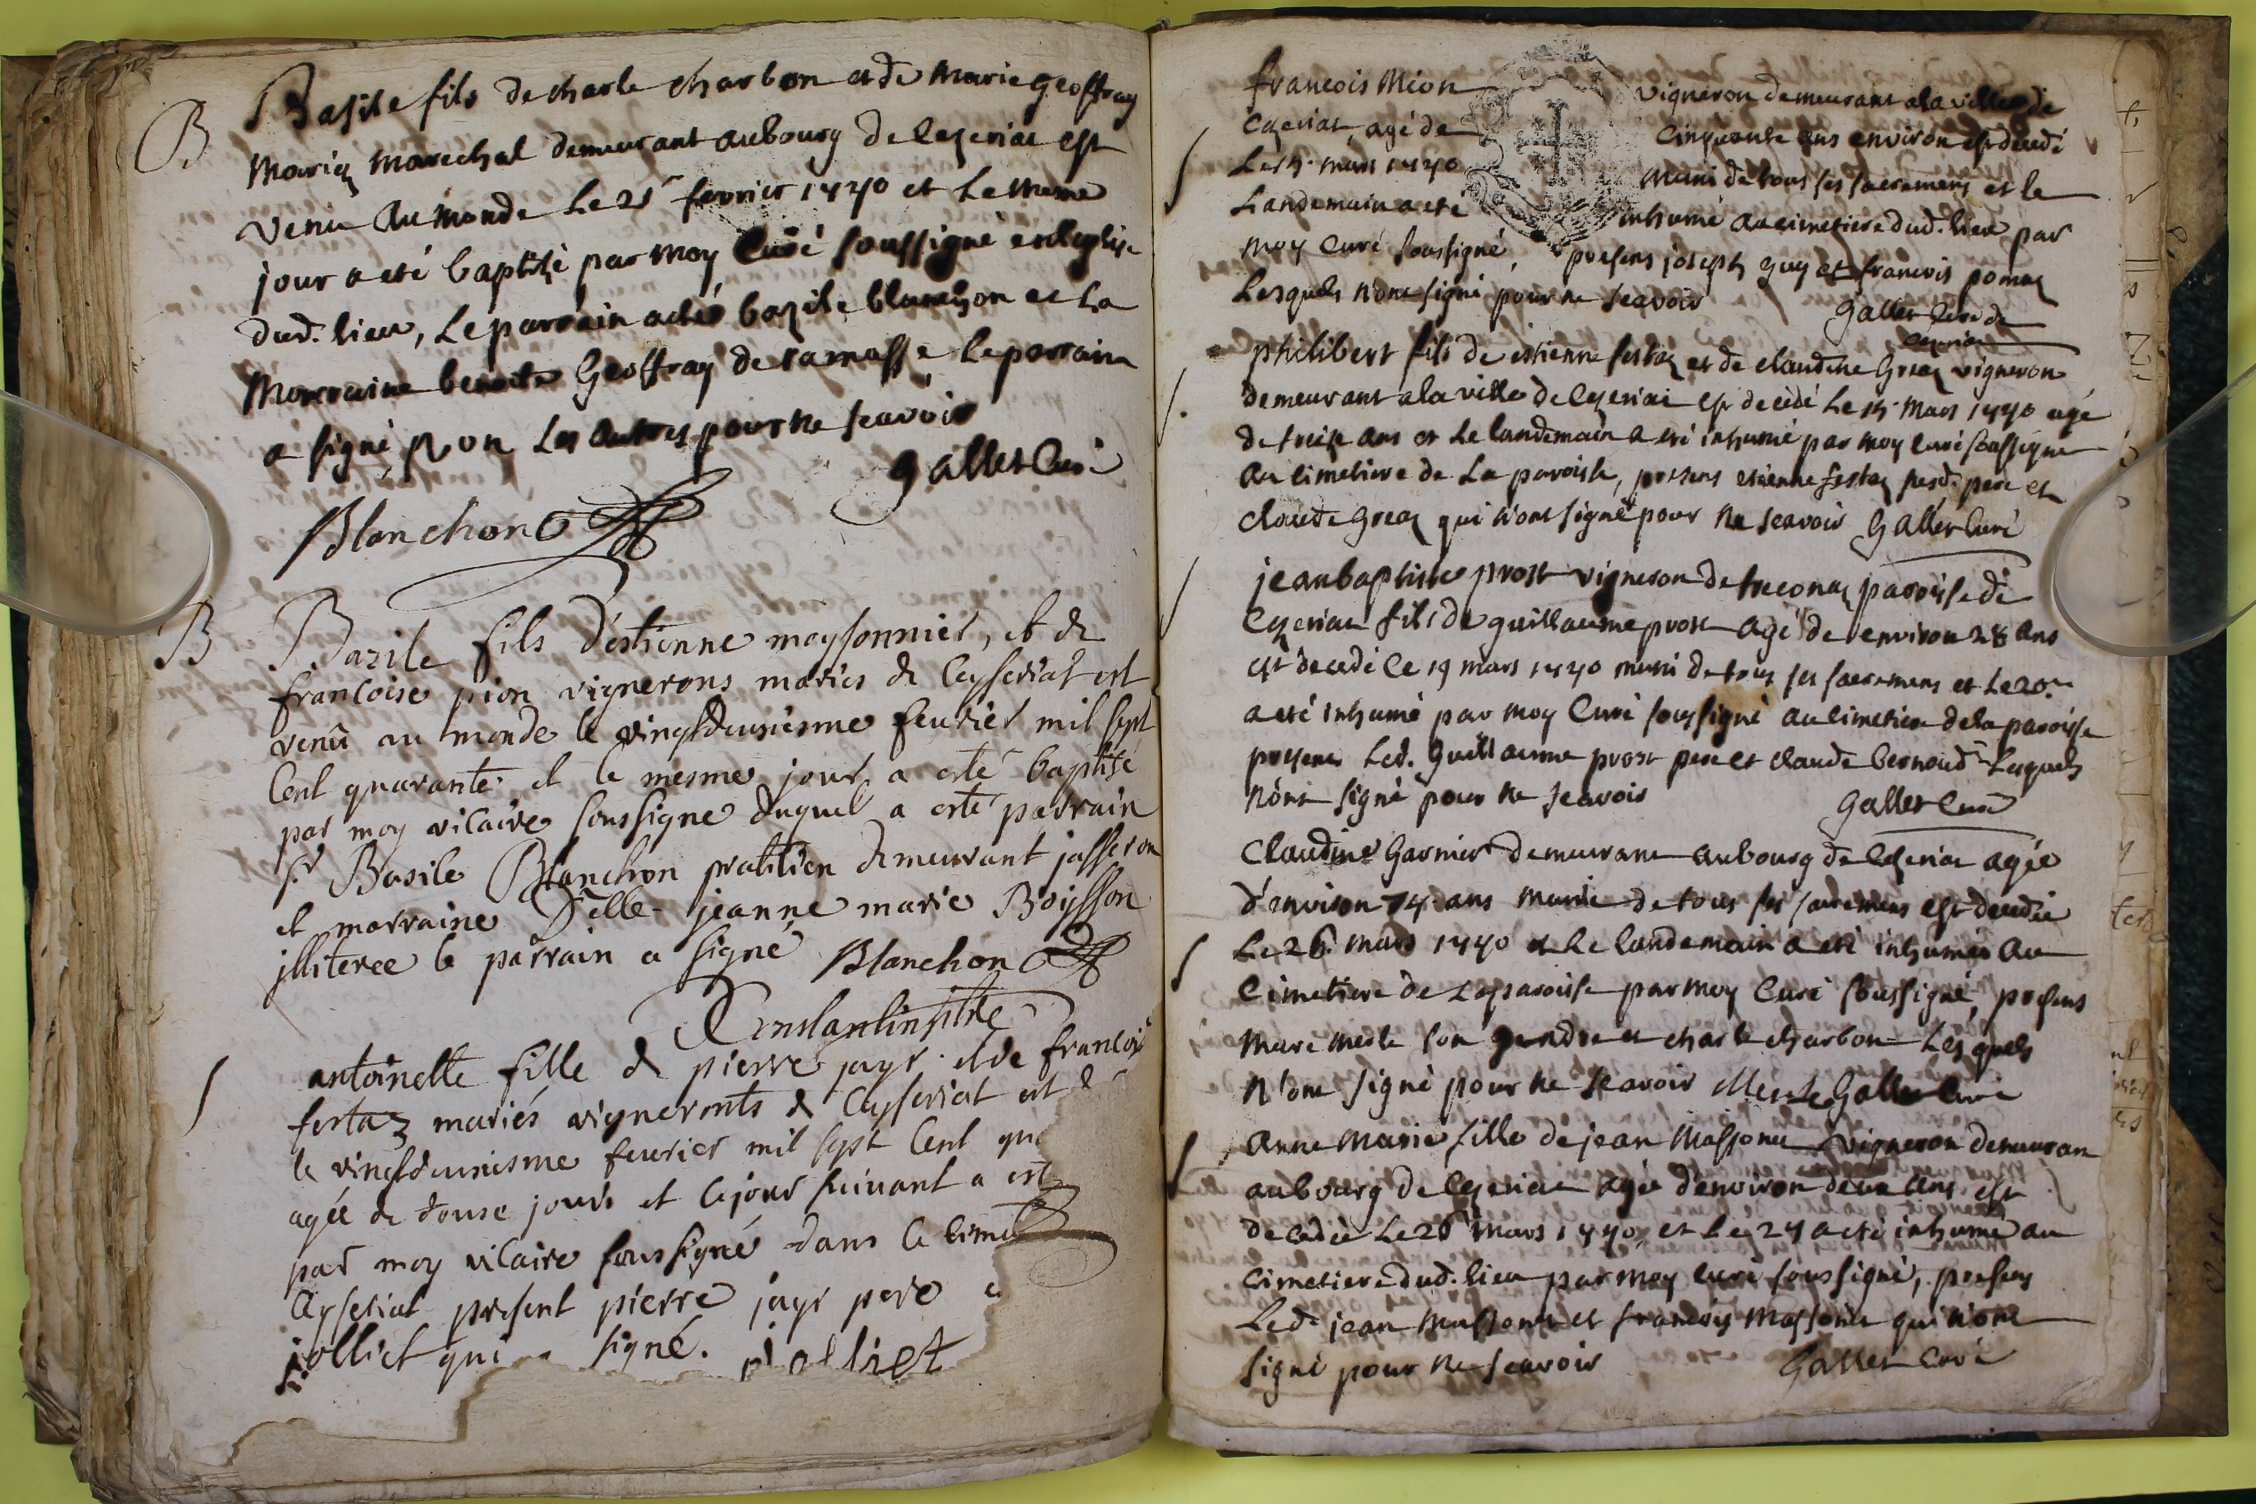 B
Basile fils de charle charbon et de Marie geoffray
Mariez Marechal demeurant au bourg de Cezeriat est
venu au monde Le 21 fevrier 1740 et Le meme
jour a eté baptisé par moy Curé soussigné en l'eglise
dud. lieu, Le parrain a eté bazile blanchon et La
Marraine benoite Geoffray de ramasse Le parrain
a signé Non Les autres pour ne scavoir
Gallet Curé
Blanchon
B
Bazile fils d'estienne moysonnier, et de
francoise pion vignerons mariés de Ceyseriat est
venû au monde le vingtdeuxiesme feurier mil sept
Cent quarante et le mesme jour a esté baptisé
par moy vicaire soussigne duquel a esté parrain
sr Basile Blanchon pratitien demeurant jasseron
et marraine delle jeanne marie Boysson
illiteree le parrain a signé Blanchon
Constantin
antoinette fille de pierre jayr et de francois
festaz mariés vignerons de Ceyseriat est
le vingtdeuxiesme feurier mil sept Cent qua
agée de douse jours et le jour suiuant a est
par moy vicaire soussigné dans le cime
Ceyseriat present pierre jayr pere
jolliet qui a signé. jolliet
francois Mion vigneron demeurant a la ville de
Cezeriat, agé de Cinquante ans environ est decedé
Le 15 mars 1740 Muni de tous ses sacremens et le
Landemain a eté inhumé au cimetiere dud. lieu par
moy Curé soussigné, presens joseph guy et francois
Lesquels n'ont signé pour ne scavoir Gallet Curé de
Cezeriat
philibert fils de estienne festaz et de claudine Greaz vigneron
demeurant a la ville de Cezeriat est decedé Le 15 Mars 1740 agé
de treize ans et Le landemain a eté inhumé par moy Curé soussigné
au Cimetiere de La paroisse, presens etienne festaz susd. pere et
claude Greaz qui n'ont signé pour ne scavoir Gallet Curé
jean baptiste prost vigneron de treconaz paroisse de
Cezeriat fils de guillaume prost agé de environ 28 ans
est decedé Le 19 mars 1740 muni de tous ses sacremens et Le 20me
a eté inhumé par moy Curé soussigné au Cimetiere de la paroisse
presens Led. guillaume prost pere et claude bernoud Lesquels
n'ont signé pour ne scavoir Gallet Curé
Claudine Garnier demeurant au bourg de Cezeriat agée
d'environ 74 ans munie de tous ses sacremens est decedée
Le 26 mars 1740 et Le landemain a eté inhumée au
Cimetiere de La paroisse par moy Curé soussigné, presens
Marc mesle son gendre et charle charbon Lesquels
N'ont signé pour ne scavoir Mesle Gallet Curé
Anne Marie fille de jean Massonet vigneron demeurant
au bourg de Cezeriat agée d'environ deux ans est
decedée Le 26 mars 1740, et Le 27 a eté inhumé au
cimetiere dud. lieu par moy curé soussigné, presens
Led. jean Massonet et francois Massonet qui n'ont
signé pour ne scavoir Gallet Curé